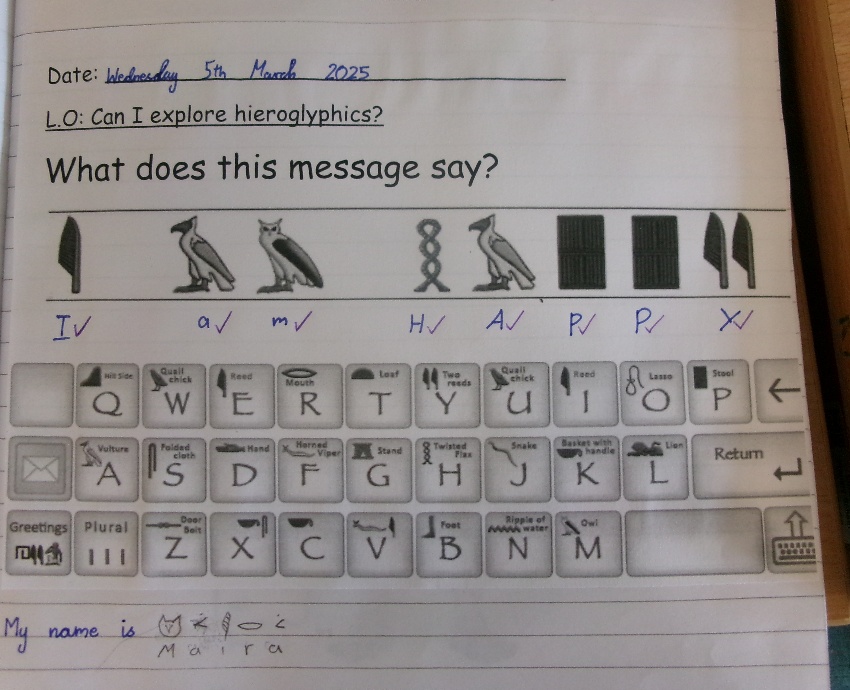 Date: Wednesday 5th March 2025
L.O: Can I explore hieroglyphics?
What does this message say?
I a m H A P P Y
Hill Side Q Quail chick W Reed E Mouth R Loaf T Two reeds Y Quail chick U Reed I Lasso O Stool P ←
Vulture A Folded cloth S Hand D Horned Viper F Stand G Twisted Flax H Snake J Basket with handle K Lion L Return
Greetings Plural Door Bolt Z X C V Foot B Ripple of water N Owl M
My name is
M a i r a